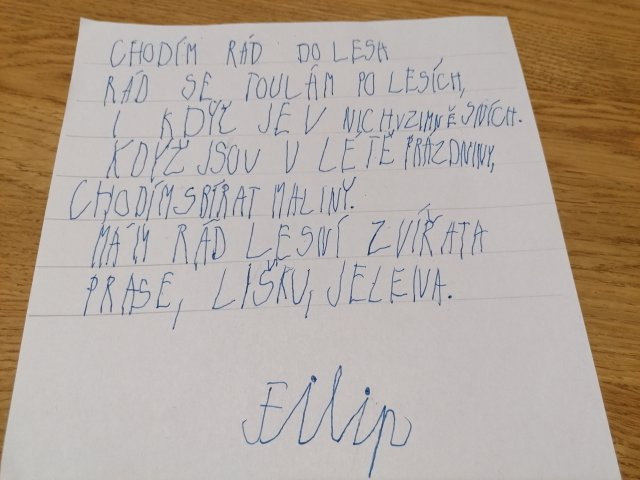 CHODÍM RÁD DO LESA
RÁD SE TOULÁM PO LESÍCH,
I KDYŽ JE V NICH V ZIMNĚ SNÍCH.
KDYŽ JSOU V LÉTĚ PRÁZDNINY,
CHODÍM SBÍRAT MALINY.
MÁM RÁD LESNÍ ZVÍŘATA
PRASE, LIŠKU, JELENA.
Filip